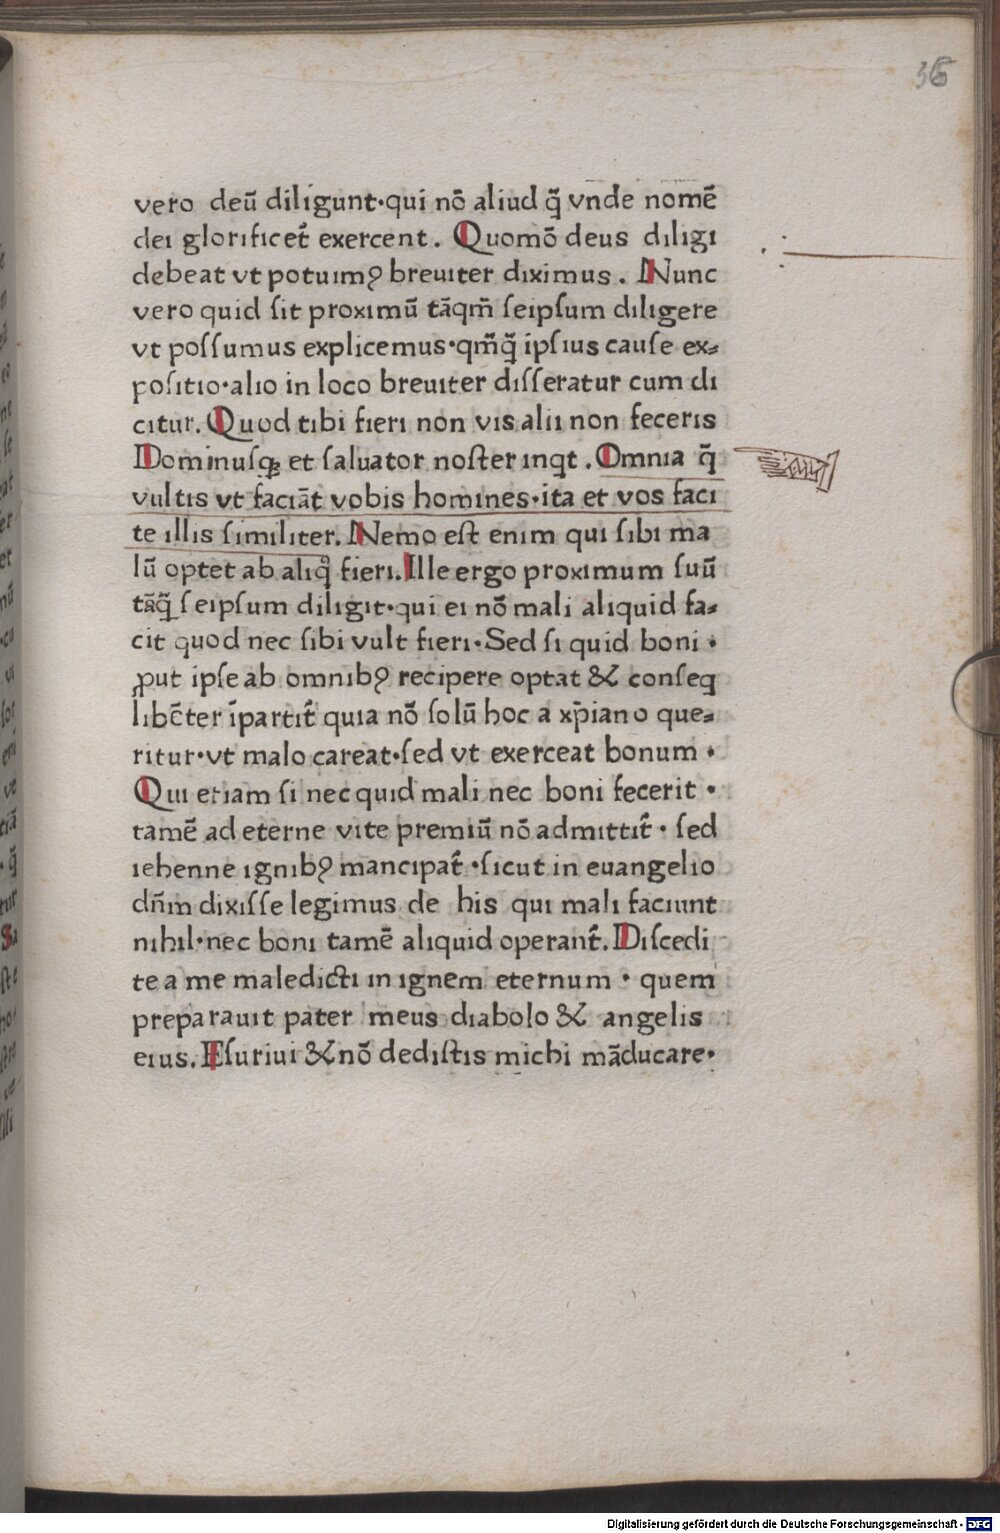 36
vero deū diligunt·qui nō aliud q̄ vnde nomē
dei glorificet᷑ exercent. Quomō deus diligi
debeat vt potuimꝰ breuiter diximus. Nunc
vero quid ſit proximū tāqm̄ ſeipſum diligere
vt poſſumus explicemus·qm̄q̄ ipſius cauſe ex⸗
poſitio·alio in loco breuiter diſſeratur cum di
citur. Quod tibi fieri non vis alii non feceris
Dominuſqꝫ et ſaluator noſter inqt. Omnia q̄
vultis vt faciāt vobis homines·ita et vos faci
te illis ſimiliter. Nemo eſt enim qui ſibi ma
lū optet ab aliq° fieri. Ille ergo proximum ſuū
tāq̄ ſeipſum diligit·qui ei nō mali aliquid fa⸗
cit quod nec ſibi vult fieri·Sed ſi quid boni·
ꝓut ipſe ab omnibꝰ recipere optat & conſeq
libēter īpartit᷑ quia nō ſolū hoc a xp̄iano que⸗
ritur·vt malo careat·ſed vt exerceat bonum·
Qui etiam ſi nec quid mali nec boni fecerit·
tamē ad eterne vite premiū nō admittit᷑·ſed
iehenne ignibꝰ mancipat᷑·ſicut in euangelio
dn̄m dixiſſe legimus de his qui mali faciunt
nihil·nec boni tamē aliquid operant᷑. Diſcedi
te a me maledicti in ignem eternum·quem
preparauit pater meus diabolo & angelis
eius. Eſuriui & nō dediſtis michi māducare·
Digitalisierung gefördert durch die Deutsche Forschungsgemeinschaft - DFG